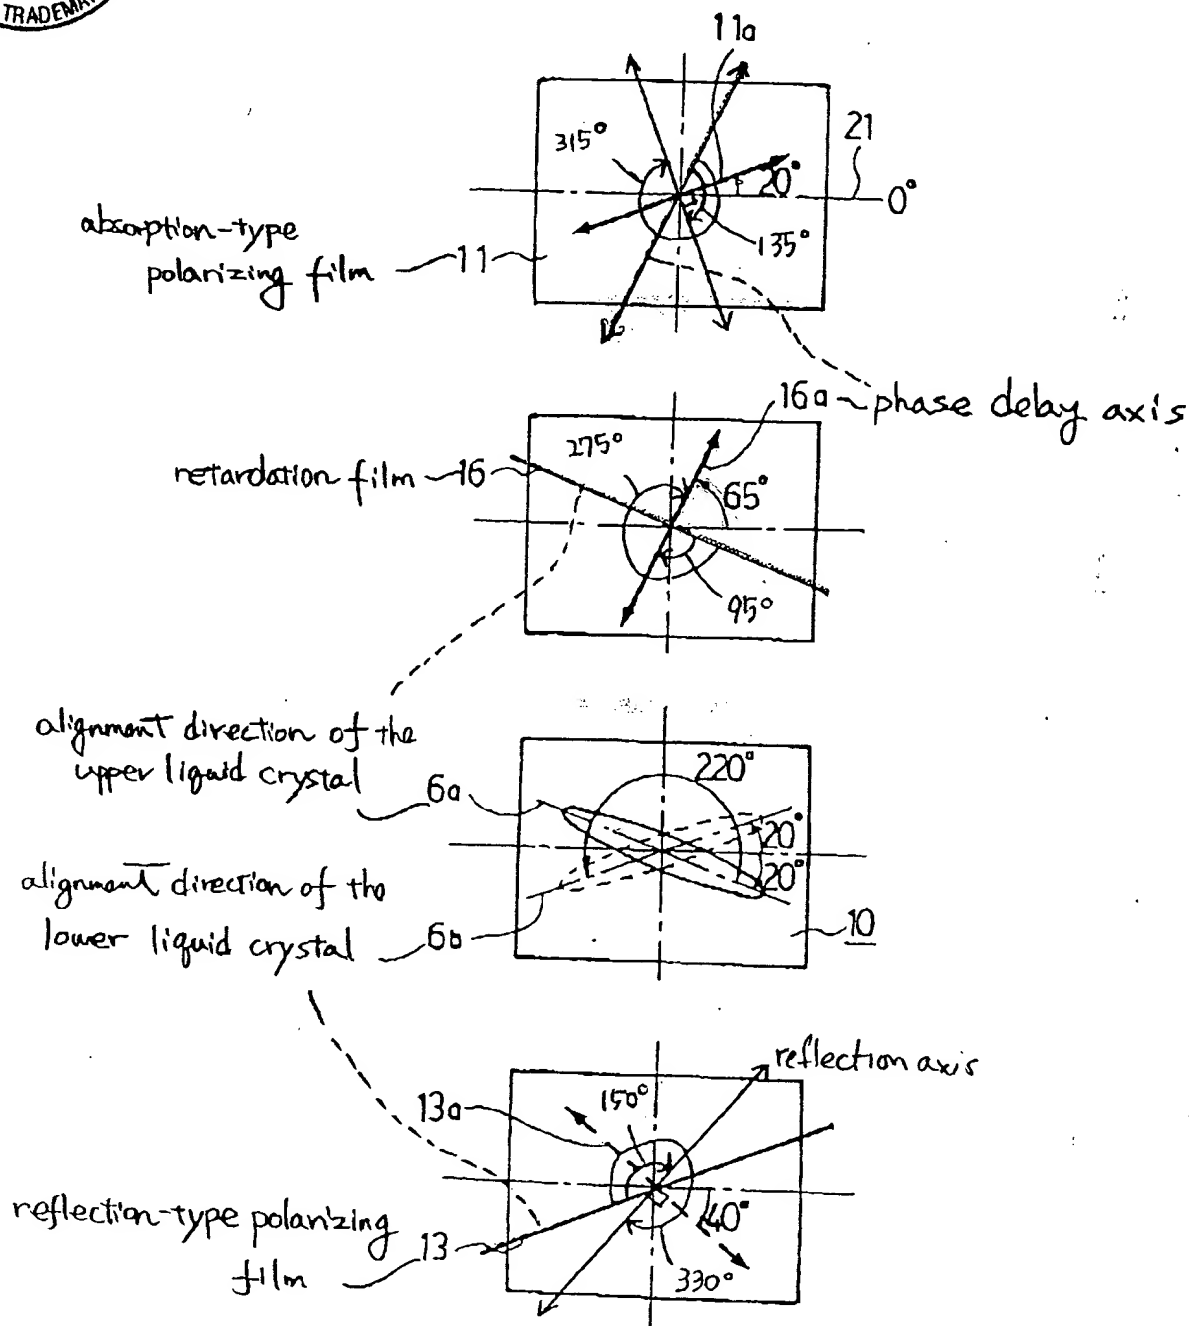 TRADEMA
11a
315°
21
20°
0°
135°
absorption-type
polarizing film
11
16a
phase delay axis
275°
retardation film
16
65°
95°
alignment direction of the
upper liquid crystal
6a
220°
20°
20°
alignment direction of the
lower liquid crystal
6b
10
reflection axis
13a
150°
reflection-type polarizing
film
13
40°
330°